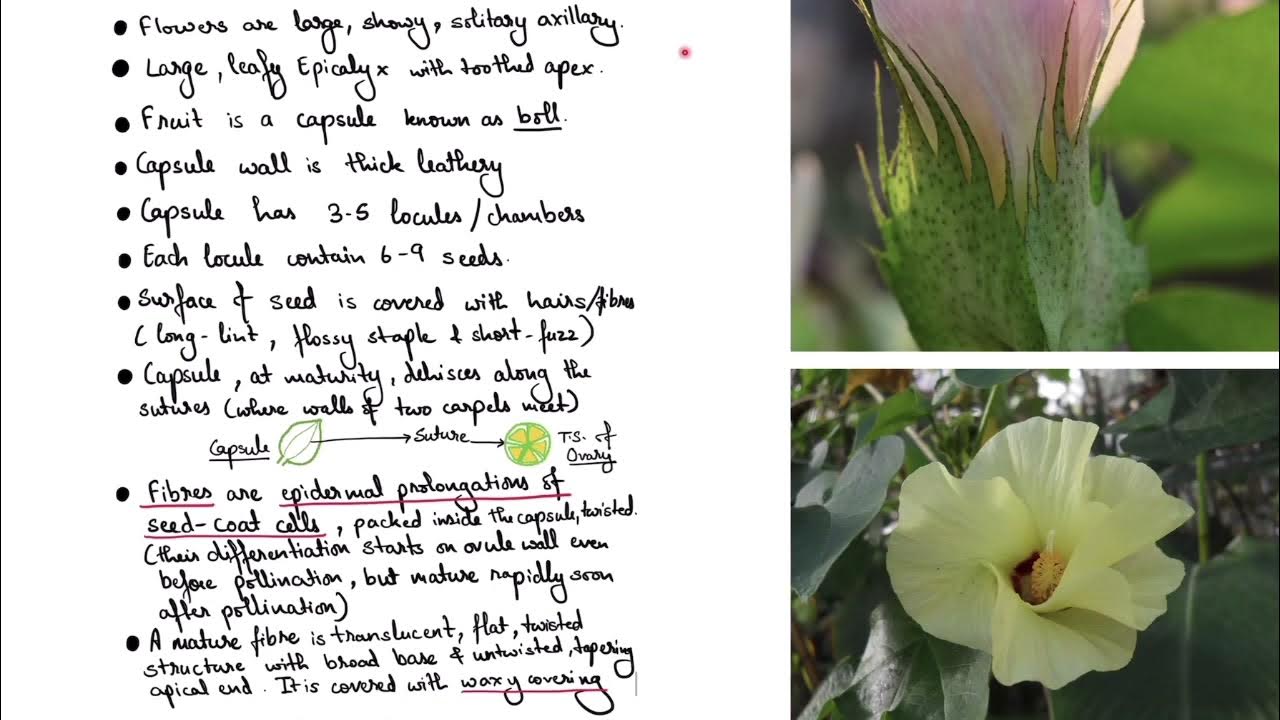 • Flowers are large, showy, solitary axillary.
• Large, leafy Epicalyx with toothed apex.
• Fruit is a capsule known as boll.
• Capsule wall is thick leathery
• Capsule has 3-5 locules/chambers
• Each locule contain 6-9 seeds.
• Surface of seed is covered with hairs/fibres
(long-lint, flossy staple & short-fuzz)
• Capsule, at maturity, dehisces along the
sutures (where walls of two carpels meet)
Capsule → Suture → T.S. of
Ovary
• Fibres are epidermal prolongations of
seed-coat cells, packed inside the capsule, twisted.
(their differentiation starts on ovule wall even
before pollination, but mature rapidly soon
after pollination)
• A mature fibre is translucent, flat, twisted
structure with broad base & untwisted, tapering
apical end. It is covered with waxy covering